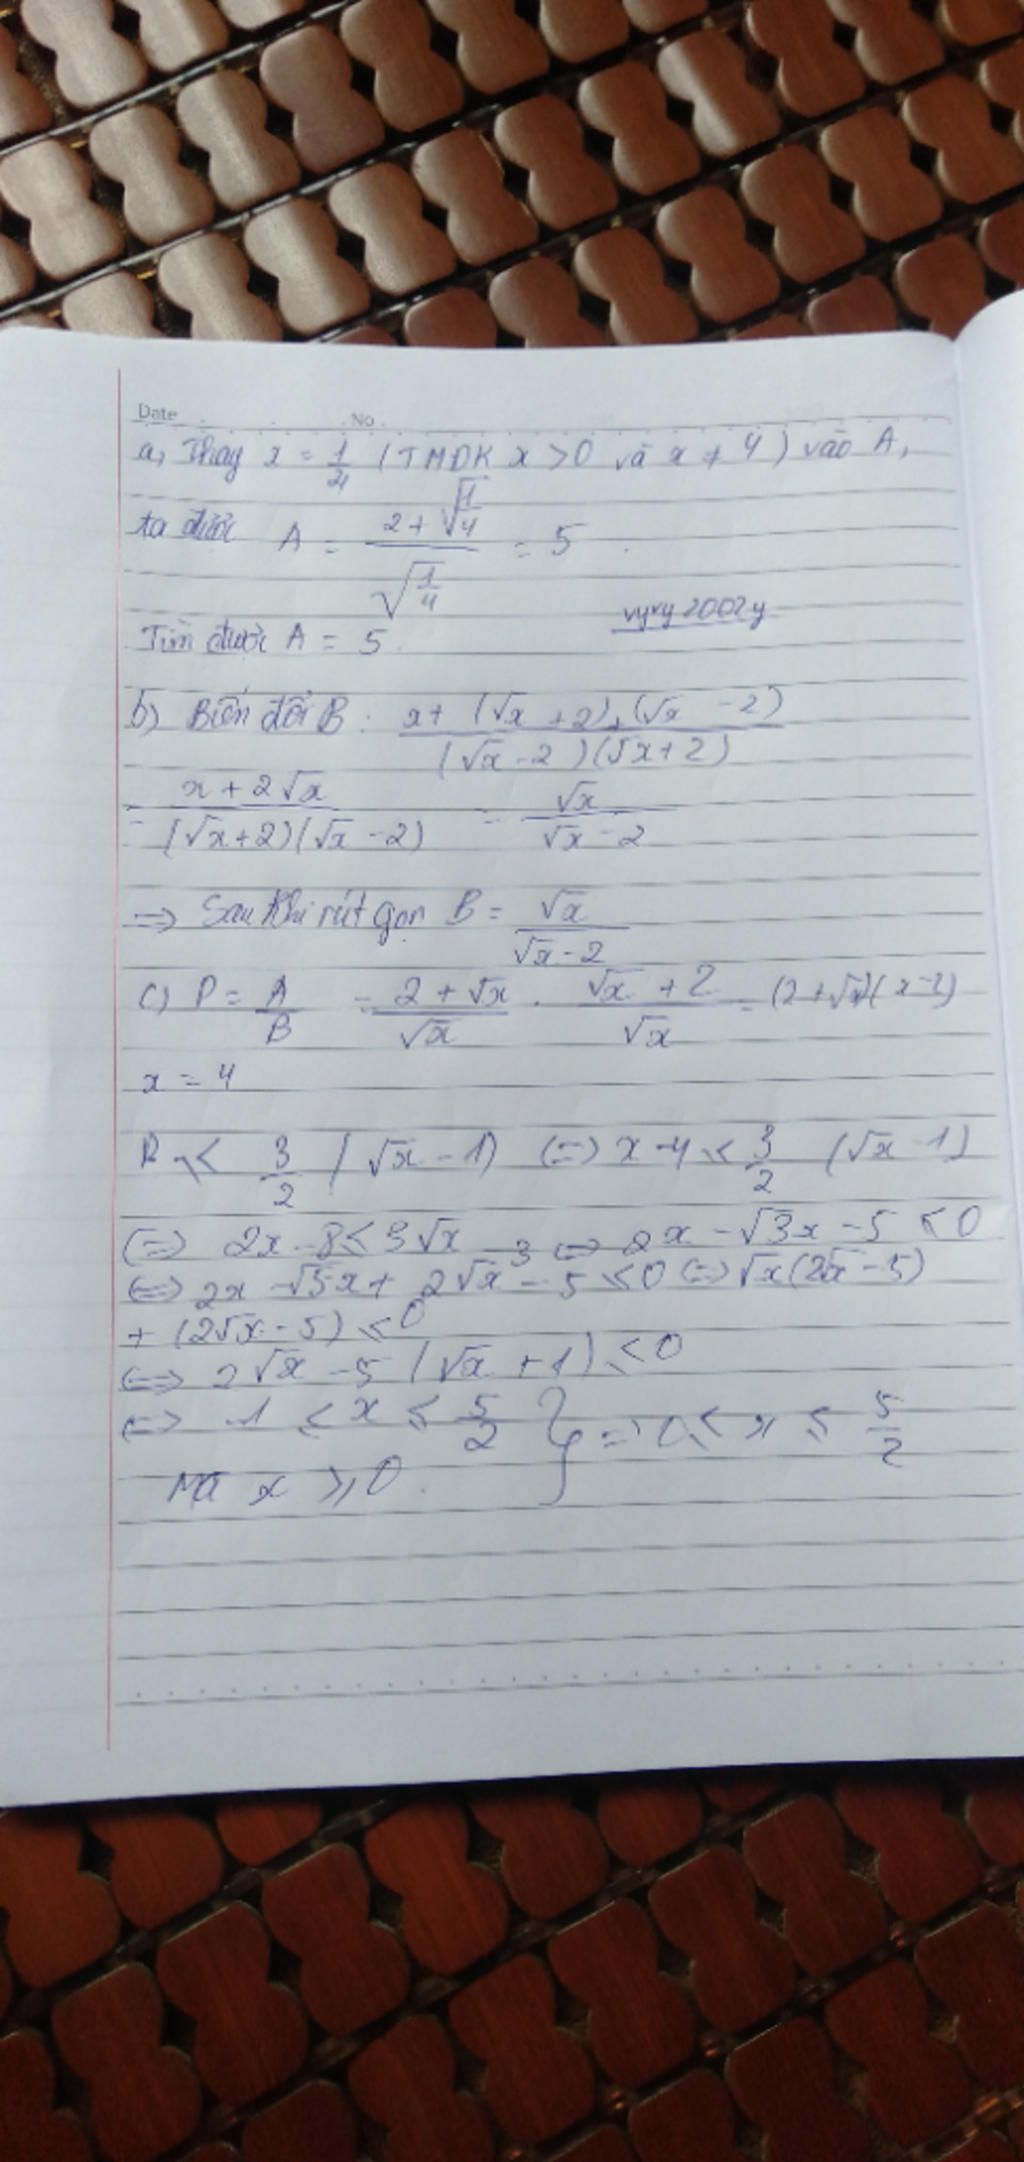 Date No
a, Thay x = 1/4 (TMDK x > 0 và x ≠ 4) vào A,
ta được A = (2 + √(1/4)) / √(1/4) = 5
vyvy2002y
Tìm được A = 5.
b) Biến đổi B: (x + (√x + 2) + (√x - 2)) / ((√x - 2)(√x + 2))
= (x + 2√x) / ((√x + 2)(√x - 2)) = √x / (√x - 2)
=> Sau khi rút gọn B = √x / (√x - 2)
c) P = A/B = (2 + √x)/√x . (√x + 2)/√x = (2 + √x)(x - 2)
x = 4
≤ 3/2 (√x - 1) (=) x - 4 ≤ 3/2 (√x - 1)
(=) 2x - 8 ≤ 3√x - 3 <=> 2x - √3x - 5 ≤ 0
<=> 2x - √5x + 2√x - 5 ≤ 0 (=) √x(2√x - 5)
+ (2√x - 5) ≤ 0
<=> 2√x - 5 (√x + 1) ≤ 0
<=> -1 ≤ x ≤ 5/2 } => 0 ≤ x ≤ 5/2
Mà x ≥ 0.